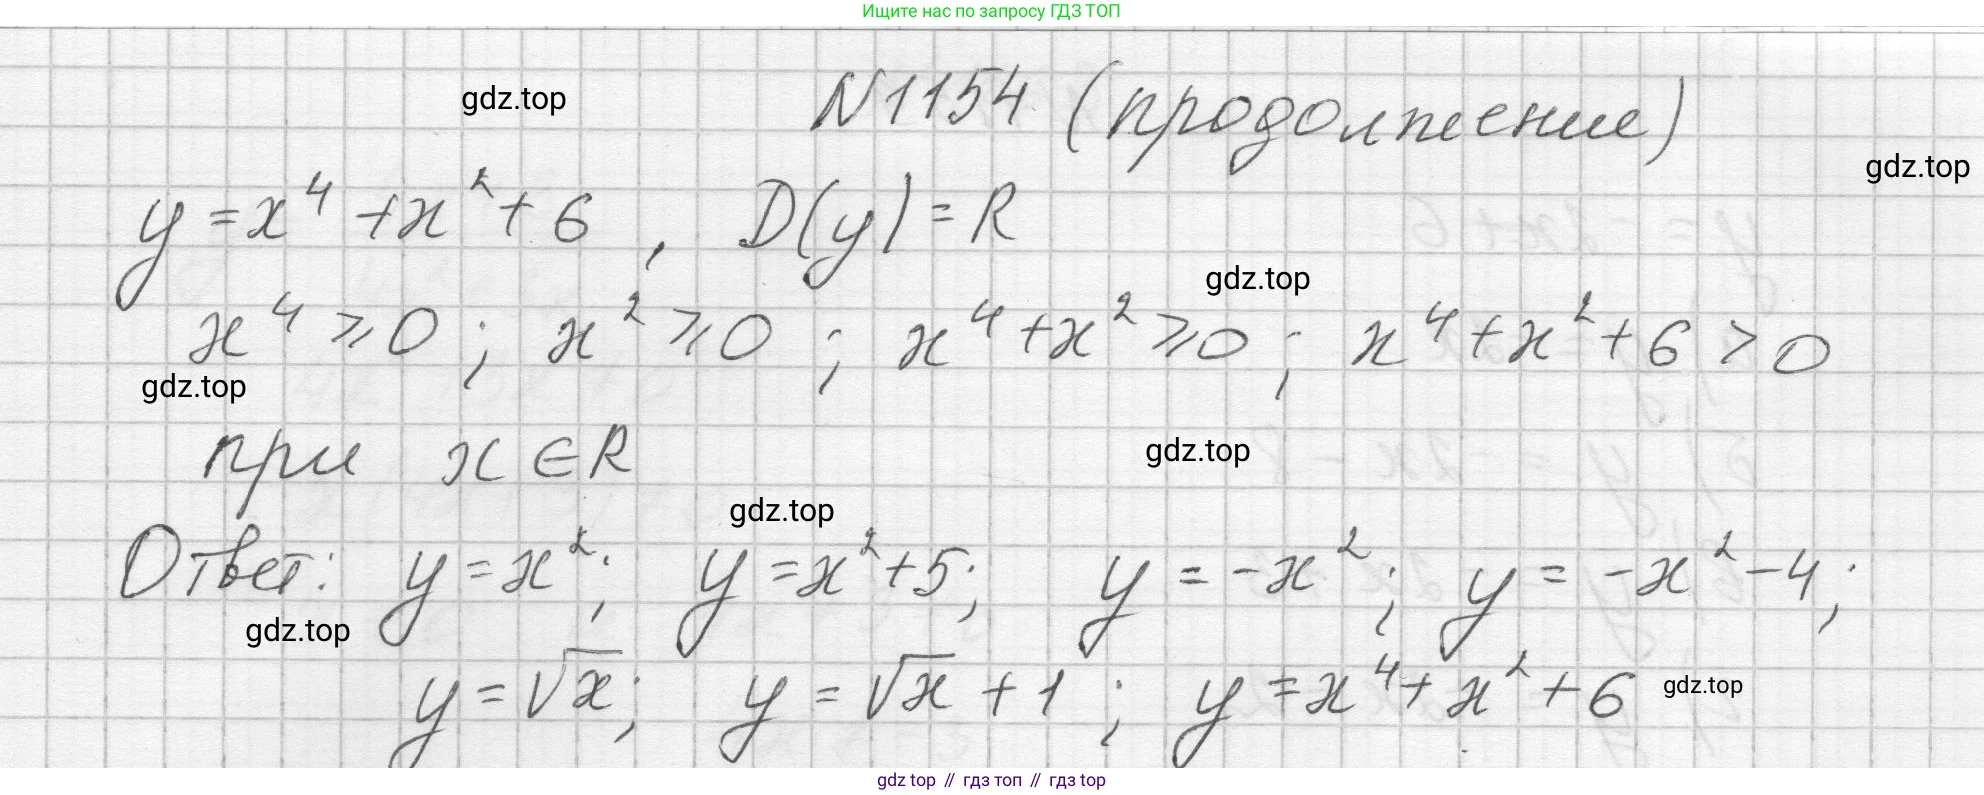 Ищите нас по запросу ГДЗ ТОП
gdz.top
N1154 (продолжение)
gdz.top
y = x⁴ + x² + 6 , D(y) = R
gdz.top
x⁴ ⩾ 0 ; x² ⩾ 0 ; x⁴ + x² ⩾ 0 ; x⁴ + x² + 6 > 0
gdz.top
при x ∈ R
gdz.top
gdz.top
Ответ: y = x²; y = x² + 5; y = -x²; y = -x² - 4;
gdz.top
y = √x; y = √x + 1 ; y = x⁴ + x² + 6
gdz.top
gdz top // гдз топ // гдз top